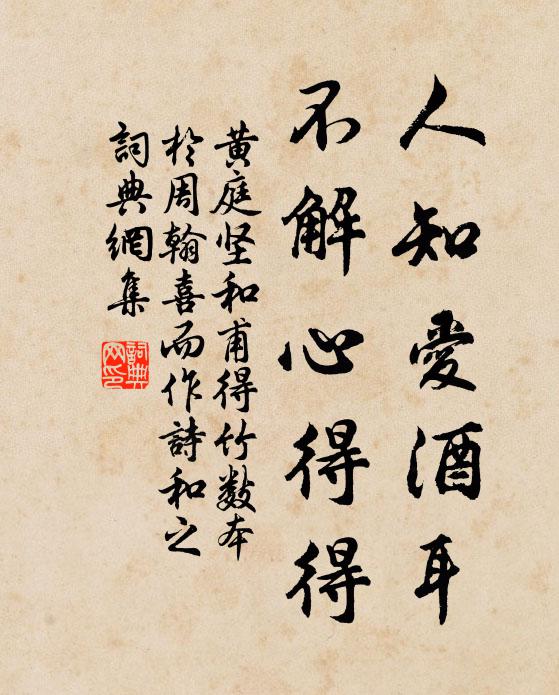 人知愛酒耳
不解心得得
黄庭坚和甫得竹数本
於周翰喜而作詩和之
詞典網集
詞典網印